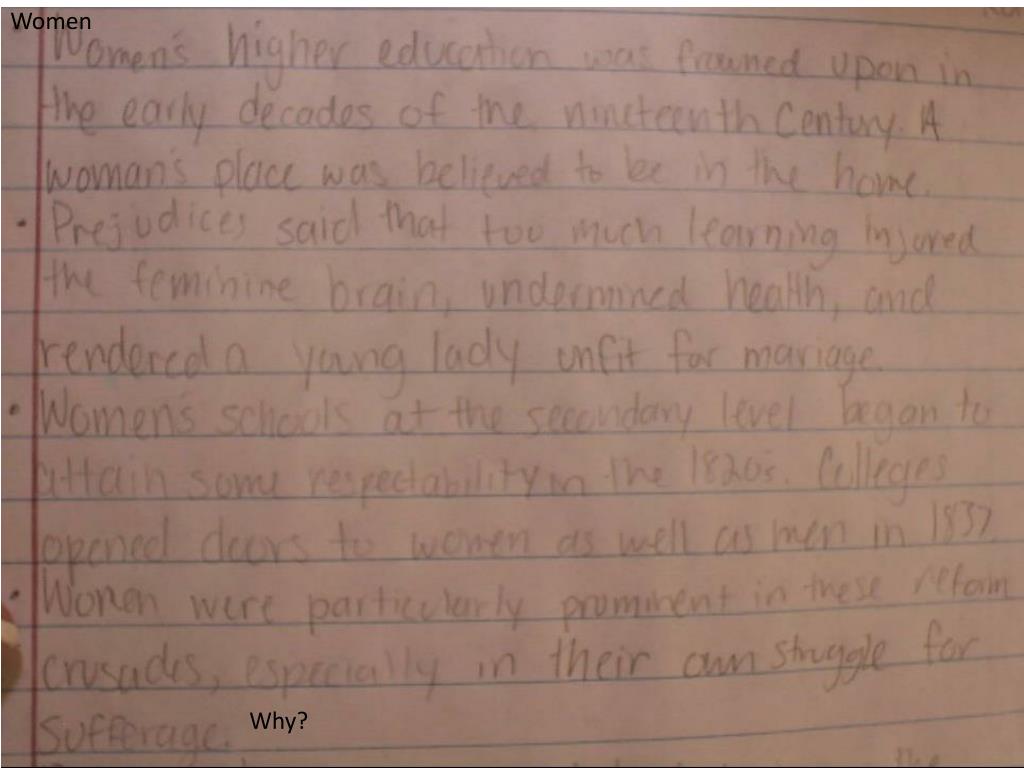 Women
Women's higher education was frowned upon in
the early decades of the nineteenth Century. A
woman's place was believed to be in the home.
• Prejudices said that too much learning injured
the feminine brain, undermined health, and
rendered a young lady unfit for mariage.
• Women's schools at the secondary level began to
attain some respectability in the 1820's. Colleges
opened doors to women as well as men in 1837.
• Women were particularly prominent in these reform
crusades, especially in their own struggle for
sufferage. Why?
the